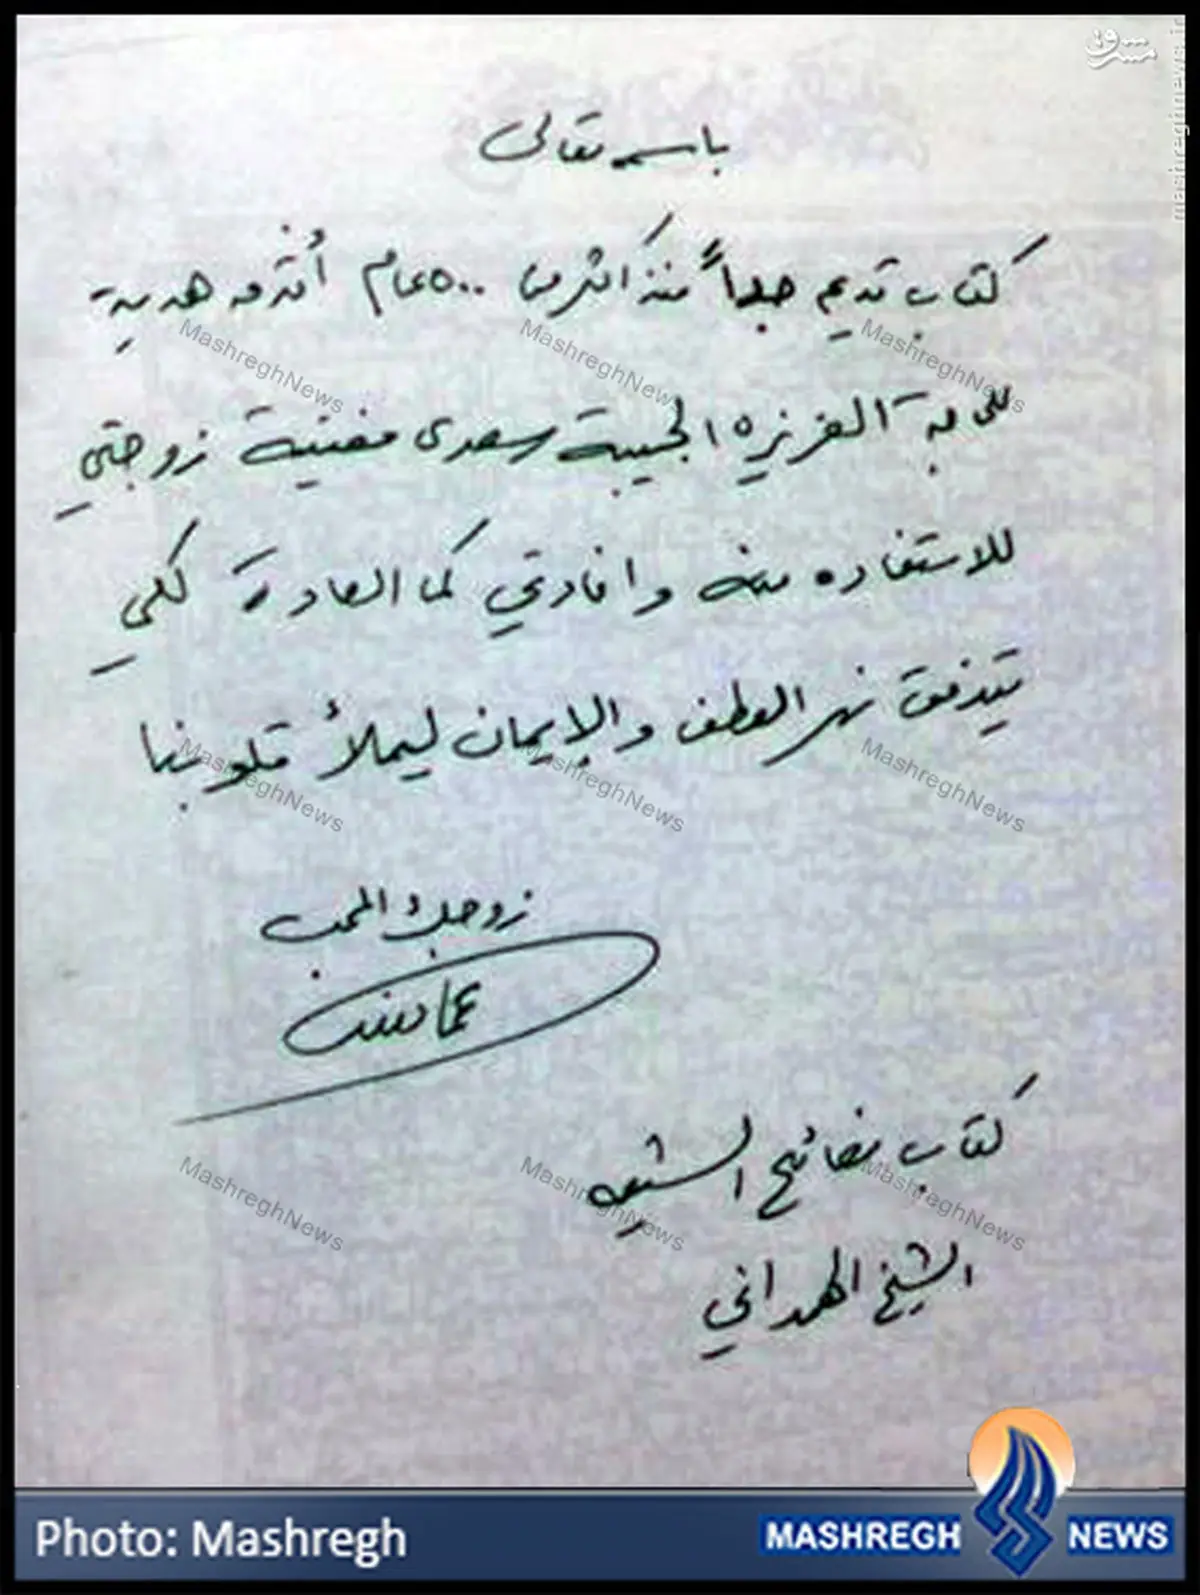 مشرق
mashreghnews.ir
باسمه تعالى
كتاب قديم جداً منذ اكثر من ٥٠٠ عام أقدمه هدية
العزيزه الحبيبة سعدى مغنية زوجتي
للاستفاده منه وافادتي كما العادة لكي
يتدفق نهر العطف والإيمان ليملأ قلوبنا
زوجك المحب
كتاب فضائح الشيعه
الشيخ الهمداني
MashreghNews MashreghNews MashreghNews
MashreghNews MashreghNews MashreghNews
MashreghNews MashreghNews MashreghNews
Photo: Mashregh
MASHREGH NEWS